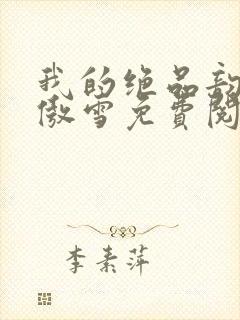 我的绝品
傲雪免费阅
李素萍